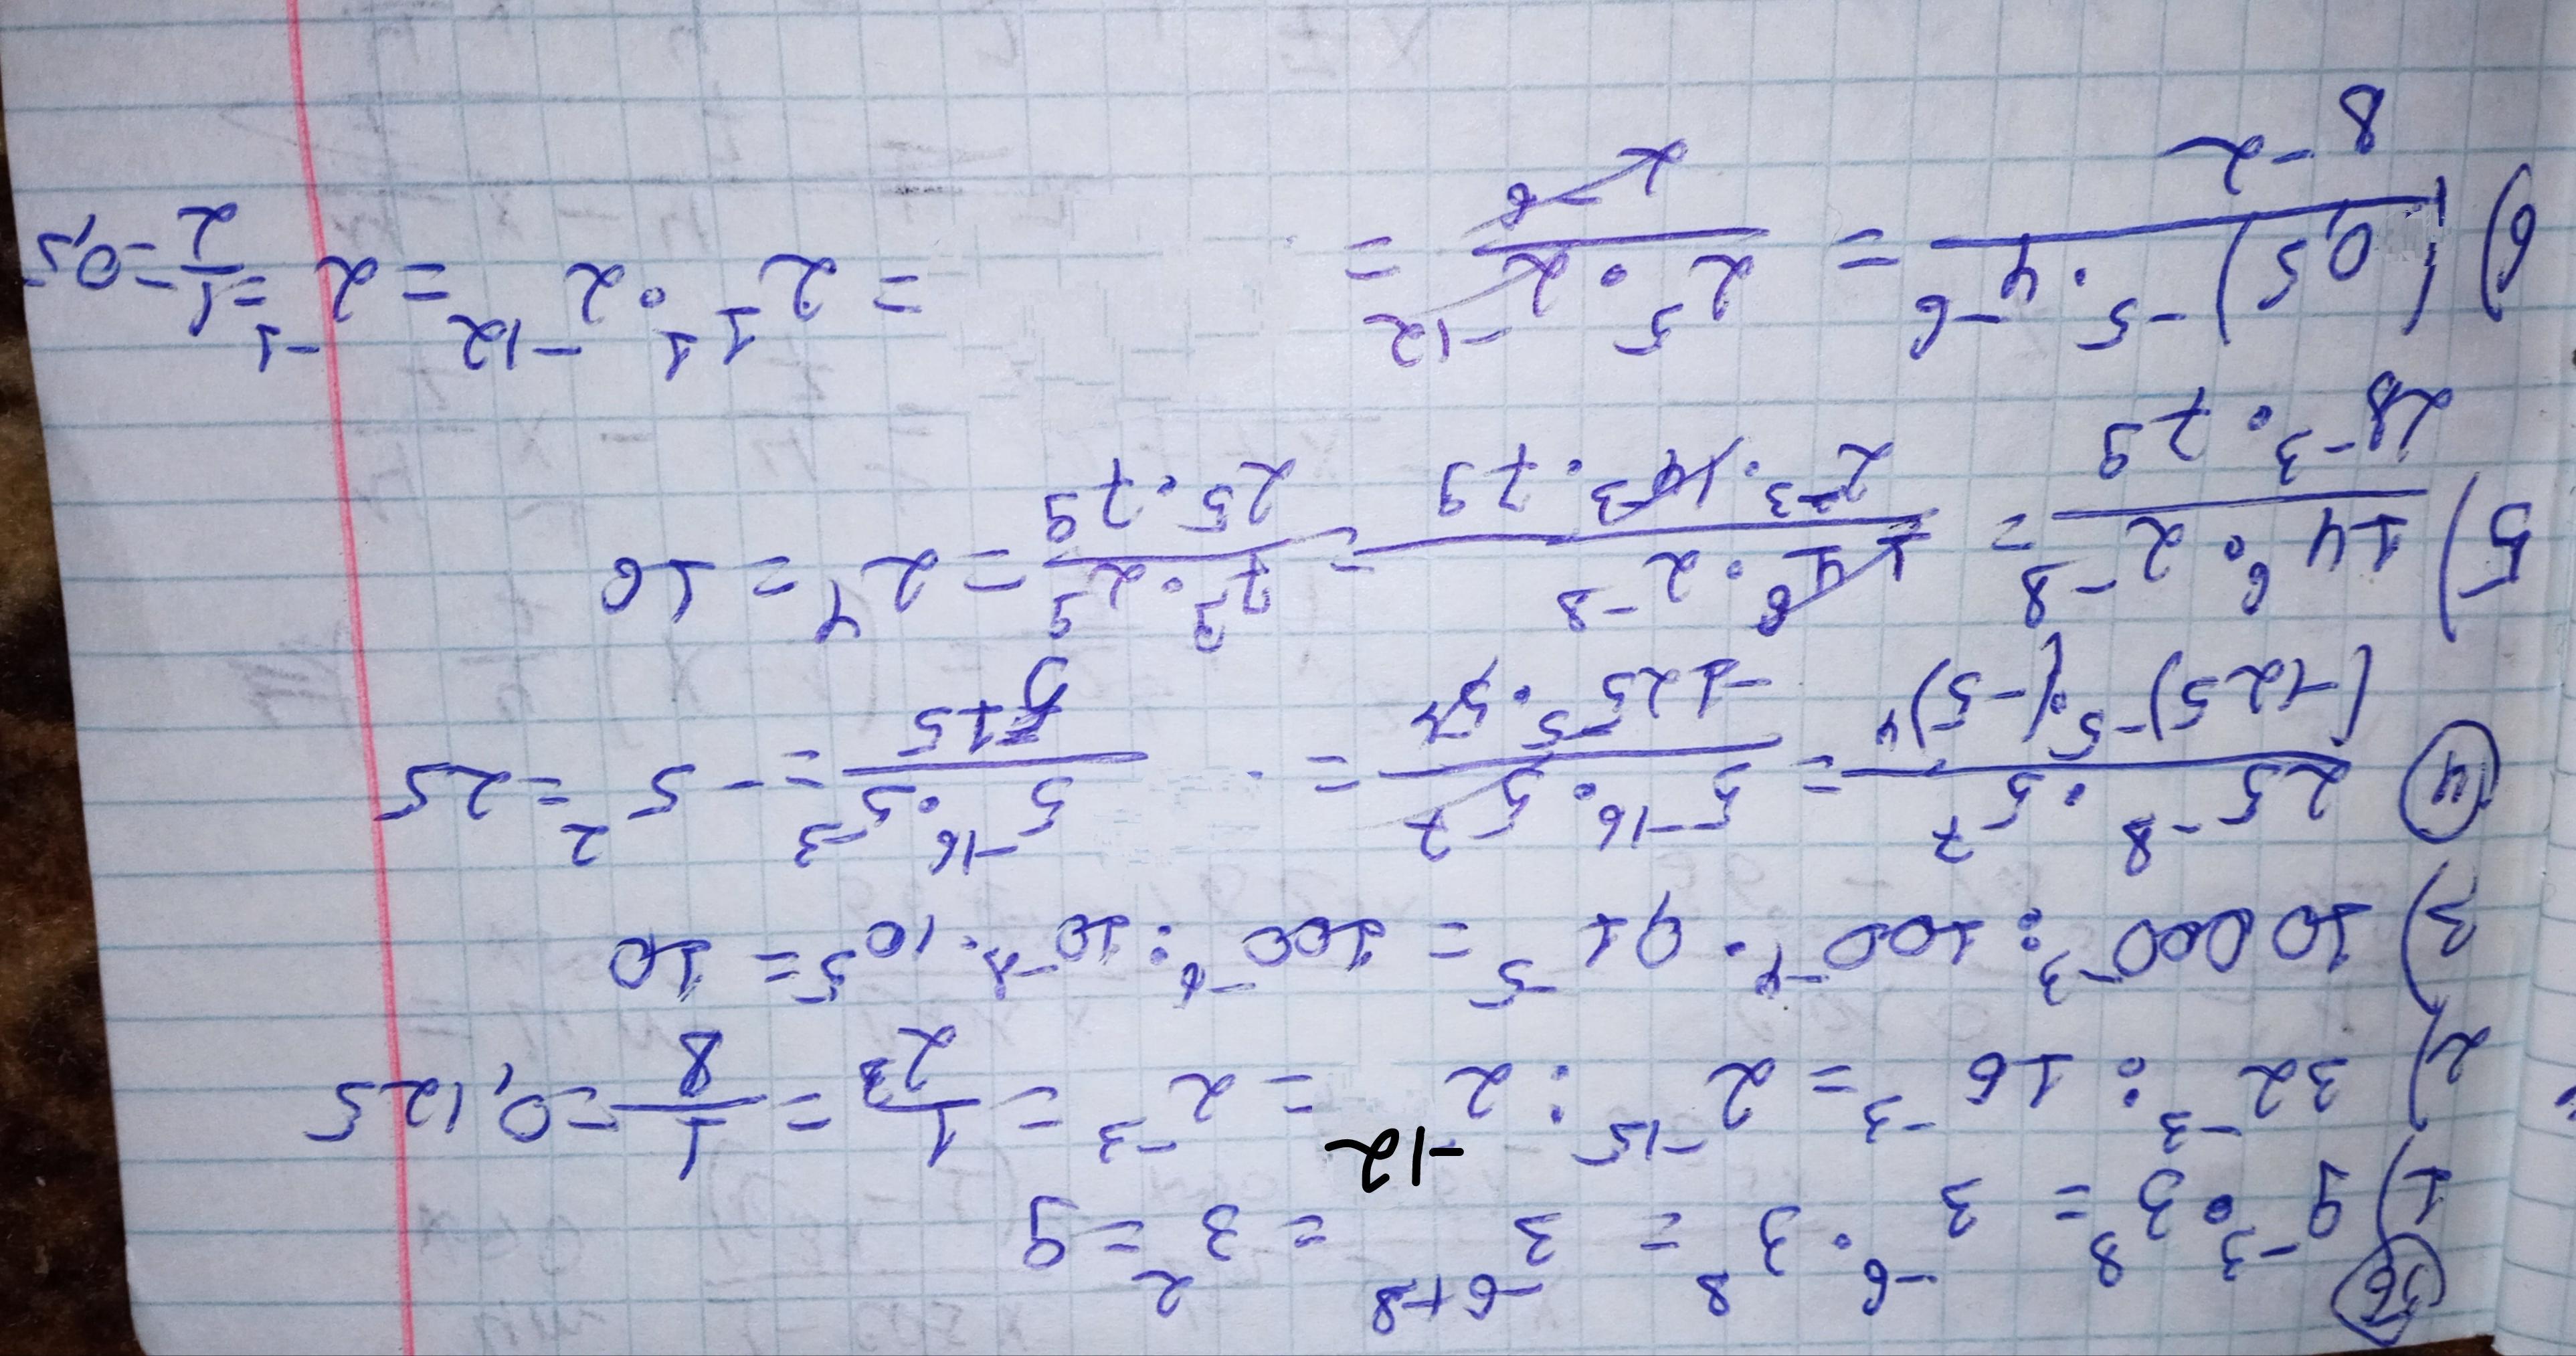 56
1) 9⁻³ · 3⁸ = 3⁻⁶ · 3⁸ = 3⁻⁶⁺⁸ = 3² = 9
2) 32⁻³ : 16⁻³ = 2⁻¹⁵ : 2⁻¹² = 2⁻³ = 1/2³ = 1/8 = 0,125
3) 10000⁻³ : 100⁻⁴ · 01⁻⁵ = 100⁻⁶ : 10⁻⁸ · 10⁵ = 10
4) 25⁻⁸ · 5⁷ / (-125)⁻⁵ · (-5)⁴ = 5⁻¹⁶ · 5⁷ / -125⁻⁵ · 5⁴ = 5⁻¹⁶ · 5⁻³ / 5 15 = -5² = 25
5) 14⁶ · 2⁻⁸ / 28⁻³ · 7⁹ = 14⁶ · 2⁻⁸ / 2⁻³ · 14⁻³ · 7⁹ = 7⁹ · 2⁹ / 2⁵ · 7⁹ = 2⁴ = 16
6) (0,5)⁻⁵ · 4⁻⁶ / 8⁻² = 2⁵ · 2⁻¹² / 2⁻⁶ =
= 2¹¹ · 2⁻¹² = 2⁻¹ = 1/2 = 0,5